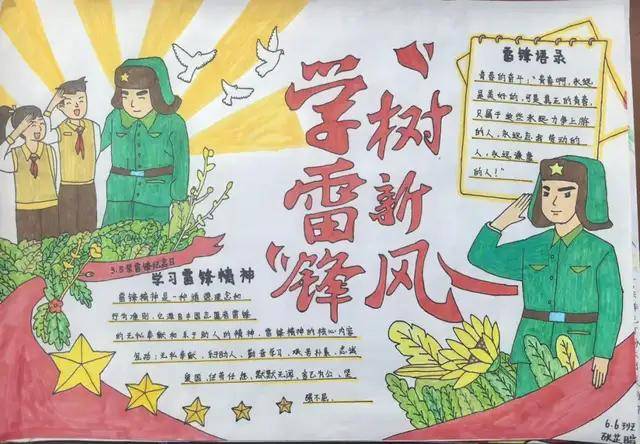 学雷锋
树新风
雷锋语录
青春啊,永远
是美好的,可是真正的青春,
只属于这些永远力争上游
的人,永远忘我劳动的
人,永远谦虚
的人!
3.5学雷锋纪念日
学习雷锋精神
雷锋精神是一种道德理念和
行为准则,它源自中国志愿者雷锋
的无私奉献和乐于助人的精神,雷锋精神的核心内容
包括:无私奉献,
助人,勤奋学习,艰苦朴素,忠诚
爱国,
默默无闻,舍己为公,坚
强不屈。
6.6